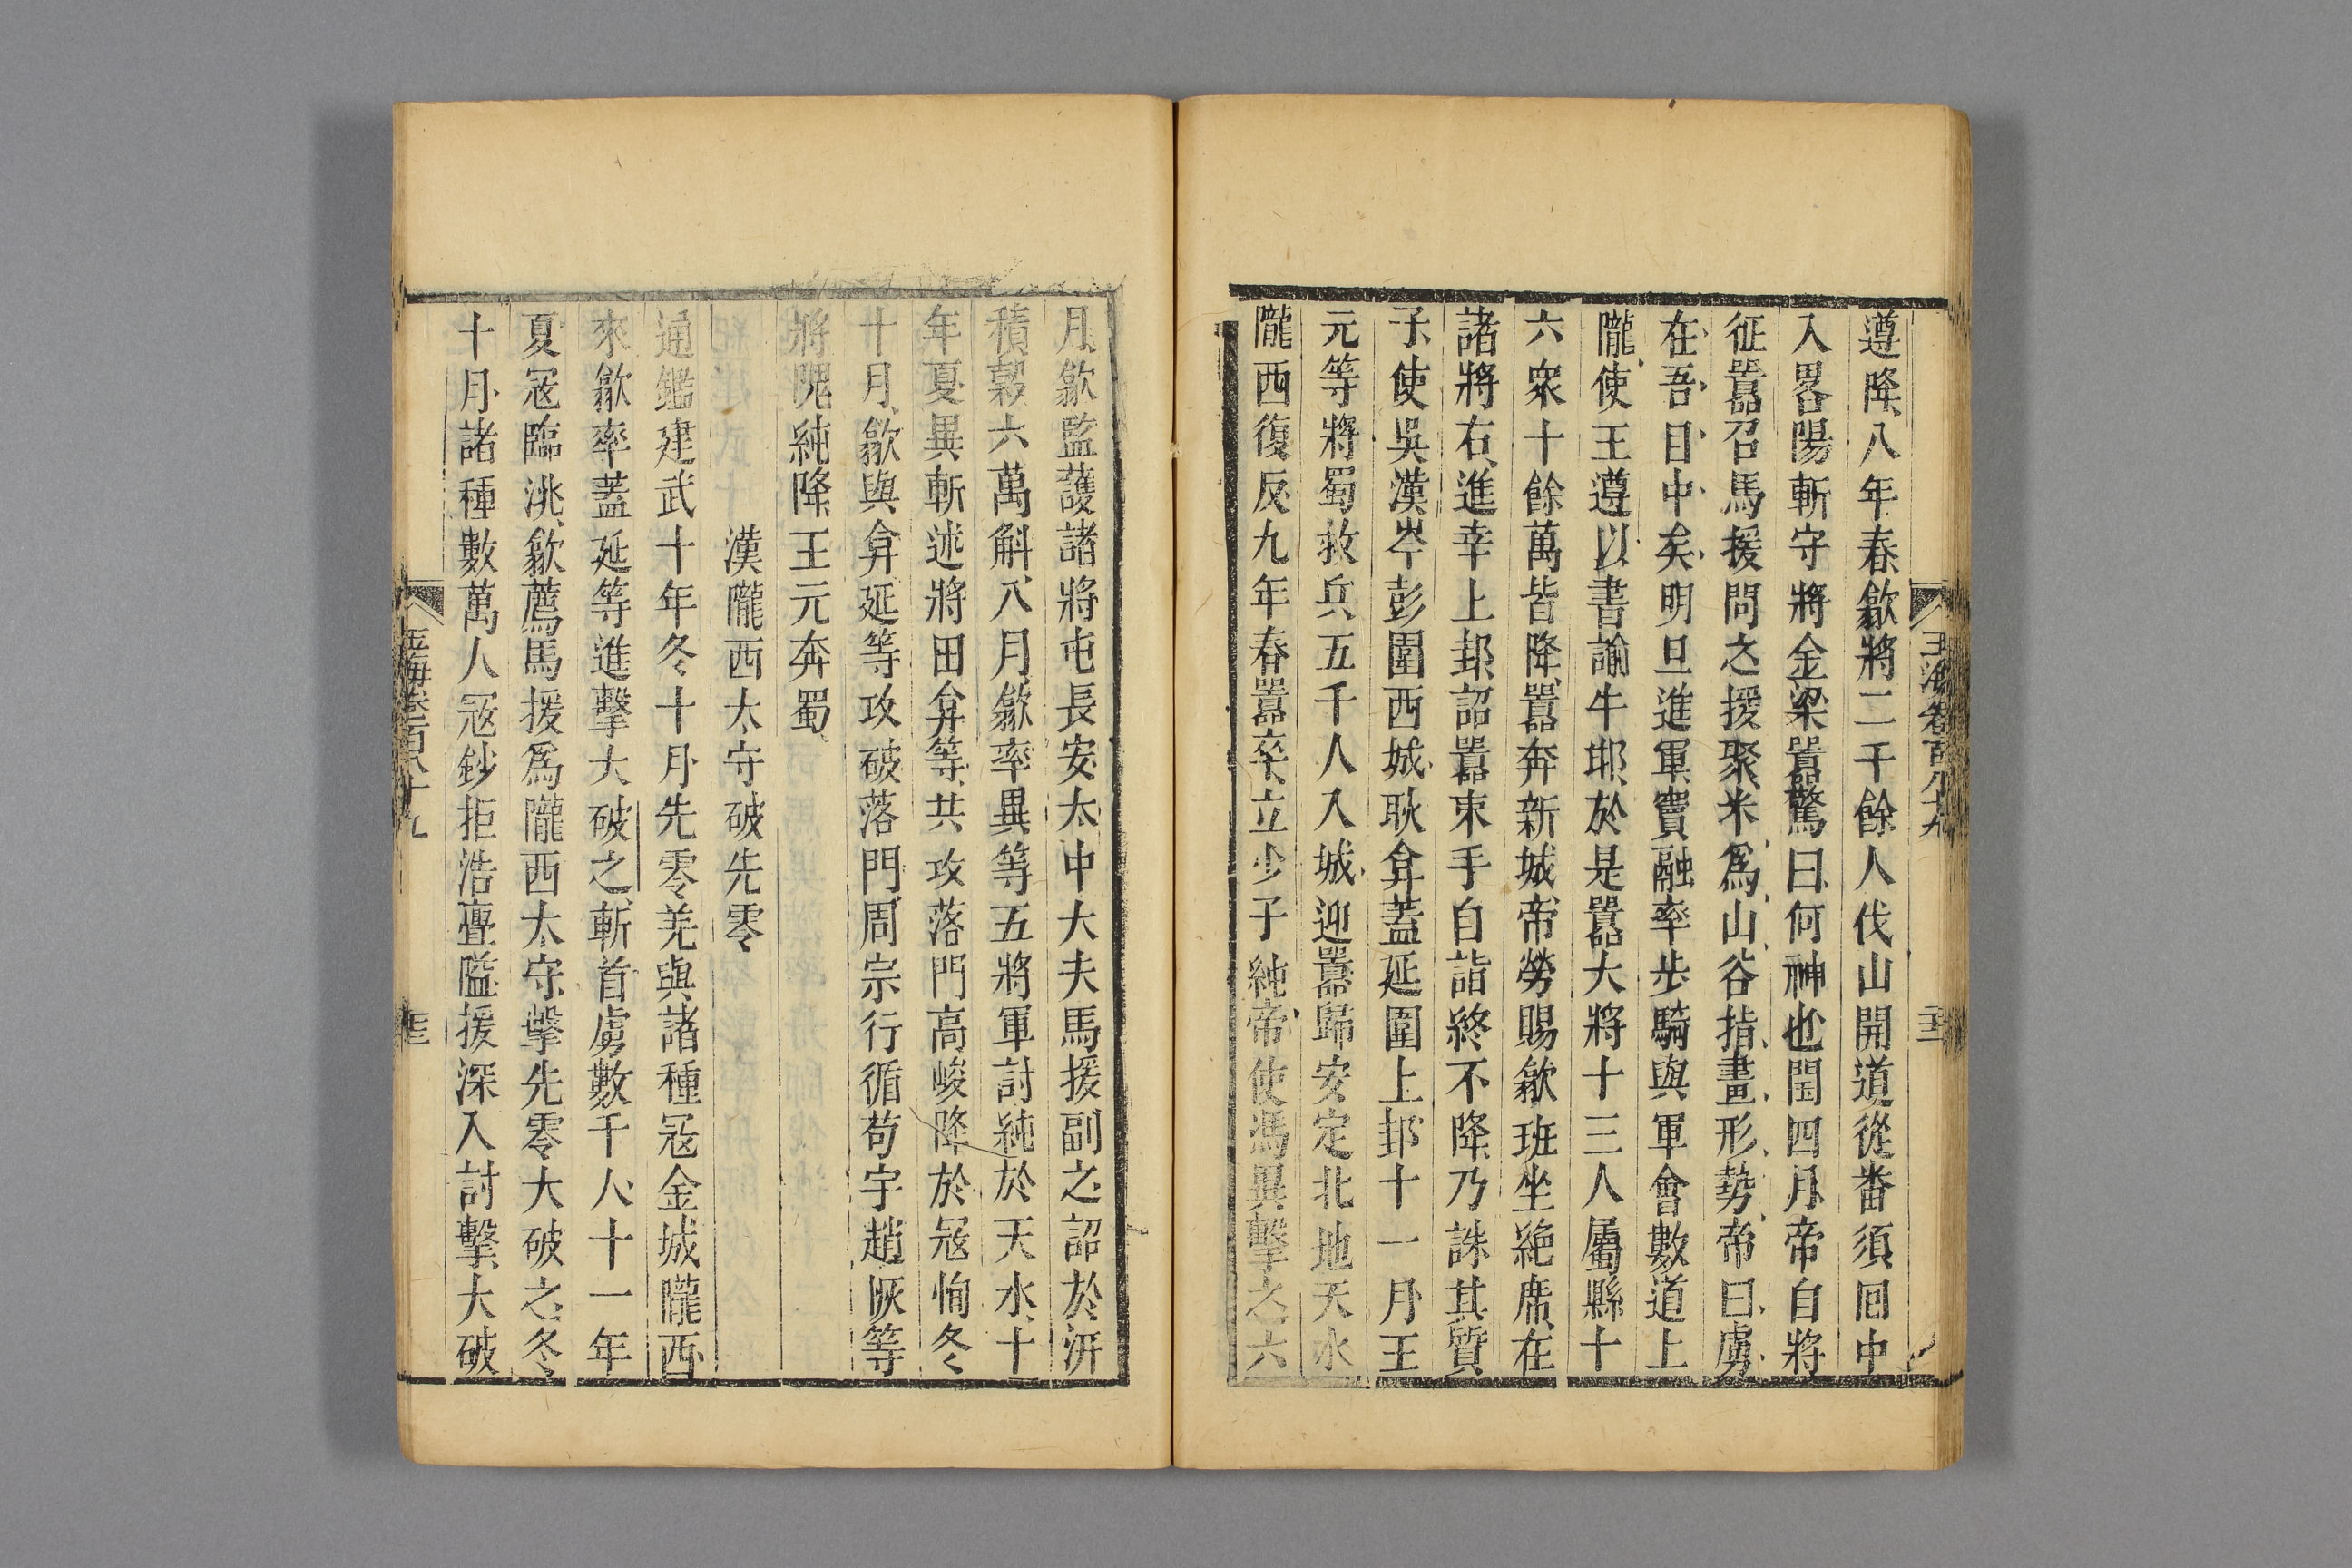 玉海卷百八十九
二十二
遵降八年春歙將二千餘人伐山開道從番須囘中
入畧陽斬守將金梁囂驚曰何神也閏四月帝自將
征囂召馬援問之援聚米爲山谷指畫形勢帝曰虜
在吾目中矣明旦進軍竇融率步騎與軍會數道上
隴使王遵以書諭牛邯於是囂大將十三人屬縣十
六衆十餘萬皆降囂奔新城帝勞賜歙班坐絶席在
諸將右進幸上邽詔囂束手自詣終不降乃誅其質
子使吳漢岑彭圍西城耿弇蓋延圍上邽十一月王
元等將蜀救兵五千人入城迎囂歸安定北地天水
隴西復反九年春囂卒立少子純帝使馮異擊之六
月歙監護諸將屯長安太中大夫馬援副之詔於汧
積穀六萬斛八月歙率異等五將軍討純於天水十
年夏異斬述將田弇等共攻落門高峻降於冦恂冬
十月歙與弇延等攻破落門周宗行循苟宇趙恢等
將隗純降王元奔蜀
漢隴西太守破先零
通鑑建武十年冬十月先零羌與諸種冦金城隴西
來歙率蓋延等進擊大破之斬首虜數千人十一年
夏冦臨洮歙薦馬援爲隴西太守擊先零大破之冬
十月諸種數萬人冦鈔拒浩亹隘援深入討擊大破
玉海卷一百八十九
二十三